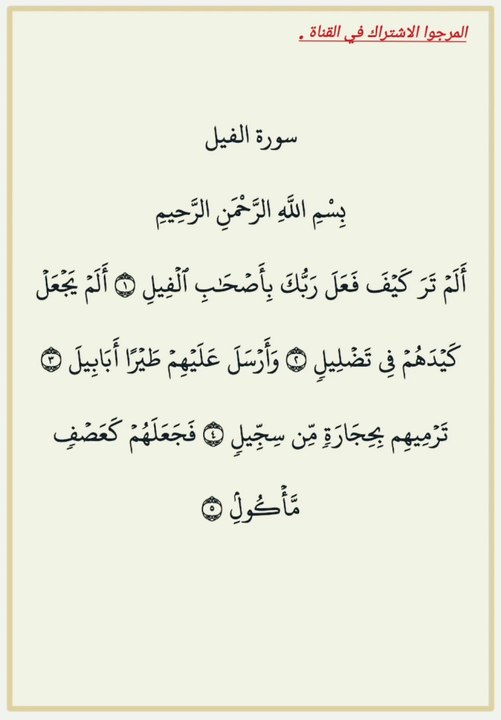 المرجوا الاشتراك في القناة .
سورة الفيل
بِسْمِ اللَّهِ الرَّحْمَنِ الرَّحِيمِ
أَلَمْ تَرَ كَيْفَ فَعَلَ رَبُّكَ بِأَصْحَٰبِ ٱلْفِيلِ ۝١ أَلَمْ يَجْعَلْ
كَيْدَهُمْ فِى تَضْلِيلٍ ۝٢ وَأَرْسَلَ عَلَيْهِمْ طَيْرًا أَبَابِيلَ ۝٣
تَرْمِيهِم بِحِجَارَةٍ مِّن سِجِّيلٍ ۝٤ فَجَعَلَهُمْ كَعَصْفٍ
مَّأْكُولٍۭ ۝٥